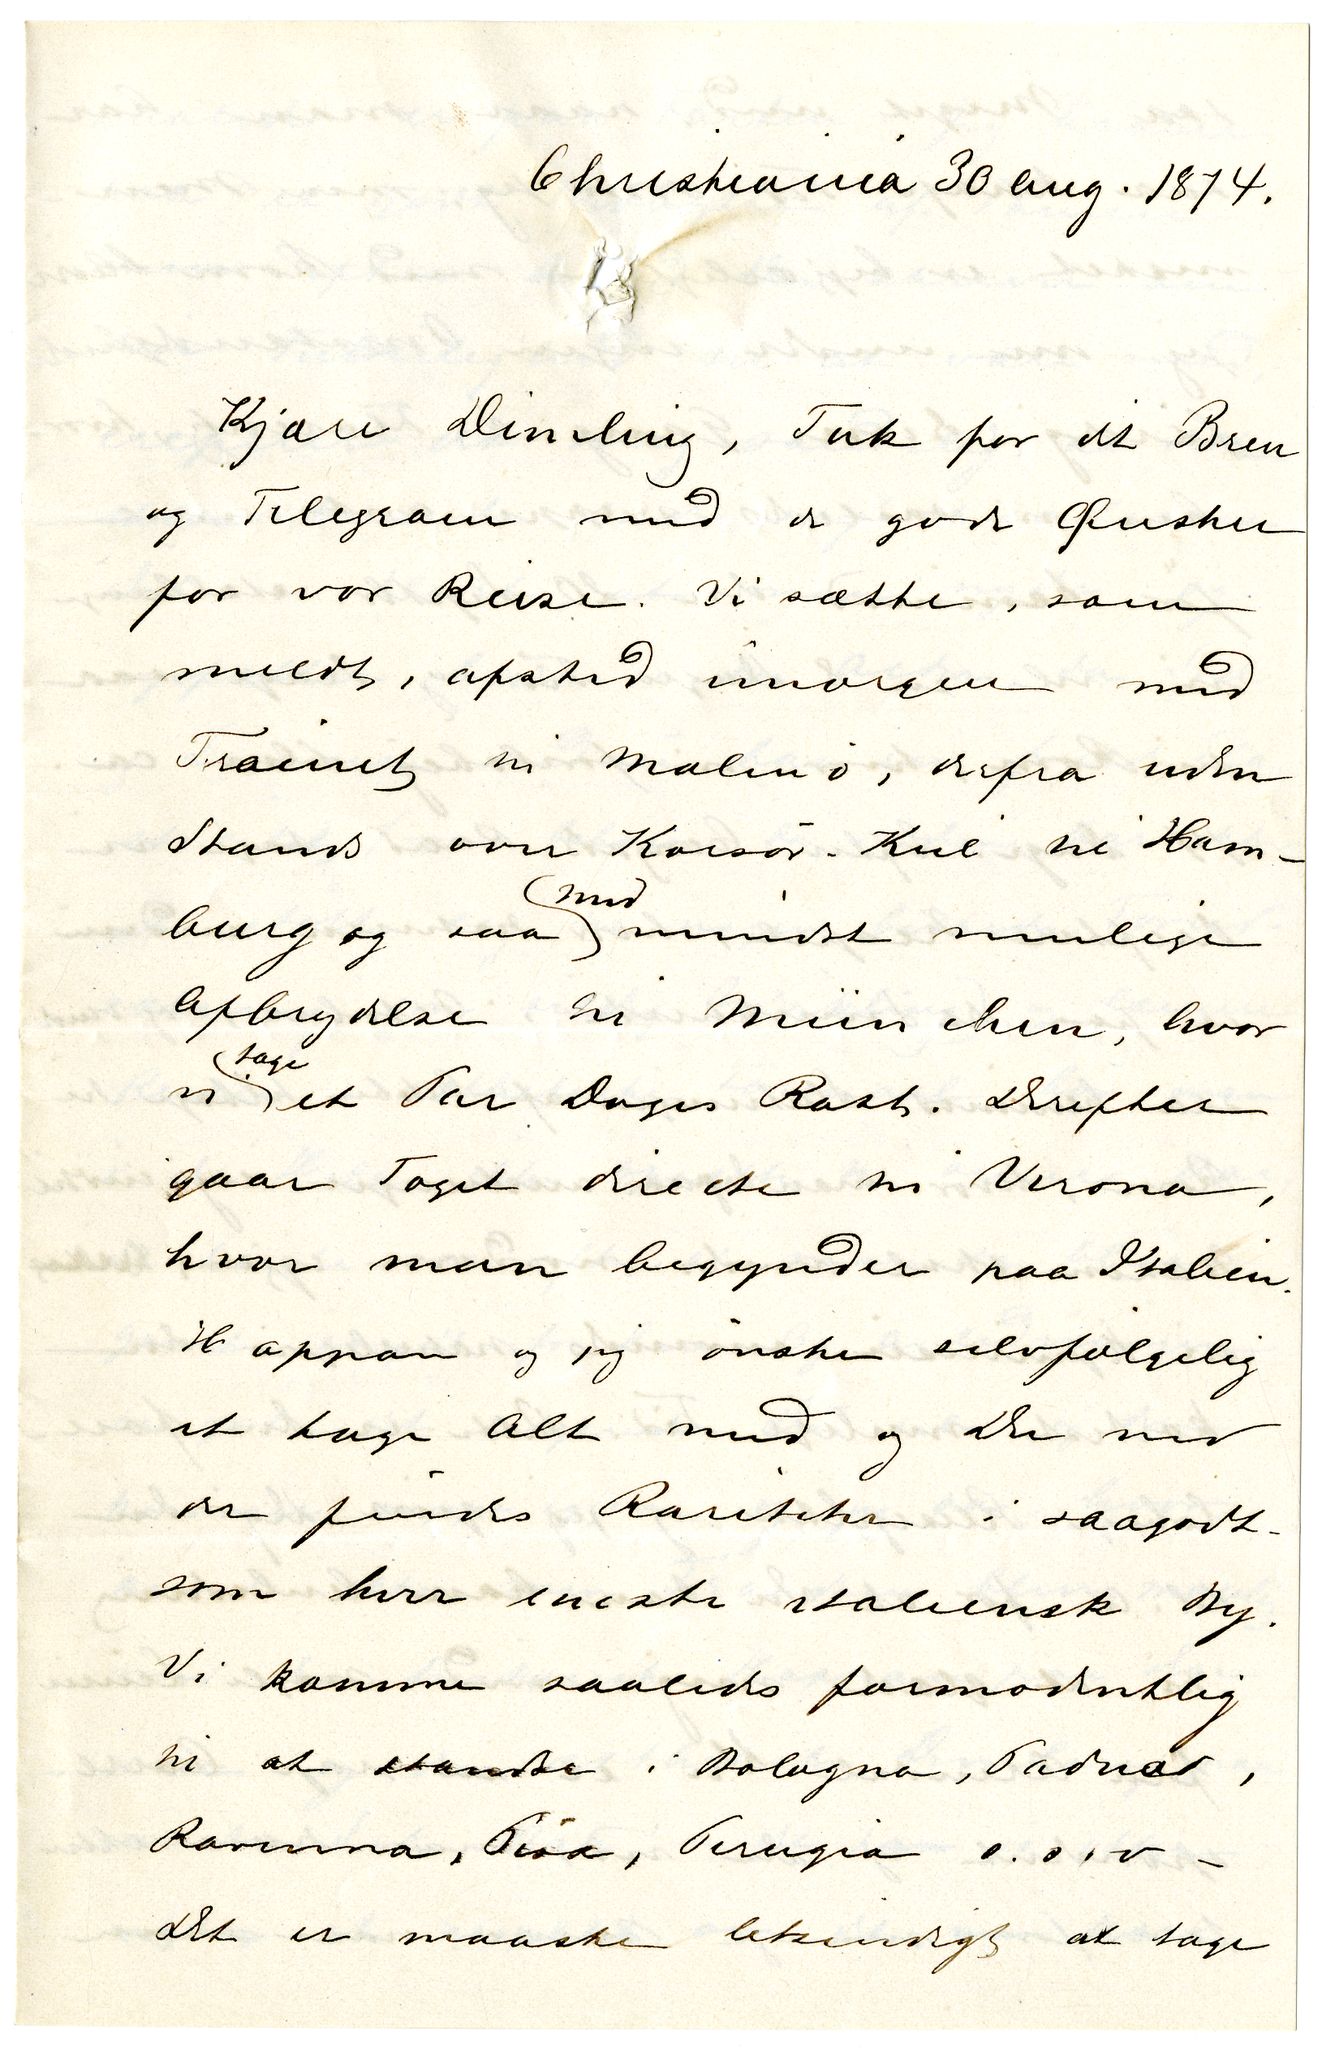 Christiania 30 Aug. 1874.
Kjære Dunling, Tak for dit Brev
og Telegram med de gode Ønsker
for vor Reise. Vi sætte, som
meldt, afsted imorgen med
Trainet til Malmö, derfra uden
Stands over Korsör-Kiel til Ham-
burg og saa med mindst mulige
Afbrydelse til München, hvor
vi tage et Par Dages Rast. Derefter
gaar Toget directe til Verona,
hvor man begynder paa Italien.
Happan og jeg önske selvfølgelig
at tage Alt med og Du ved
der findes Rariteter i saagodt-
som hver eneste italiensk By.
Vi komme saaledes formodentlig
til at standse i Bologna, Padua,
Ravenna, Pisa, Perugia o.s.v -
Det er maaske letsindigt at tage